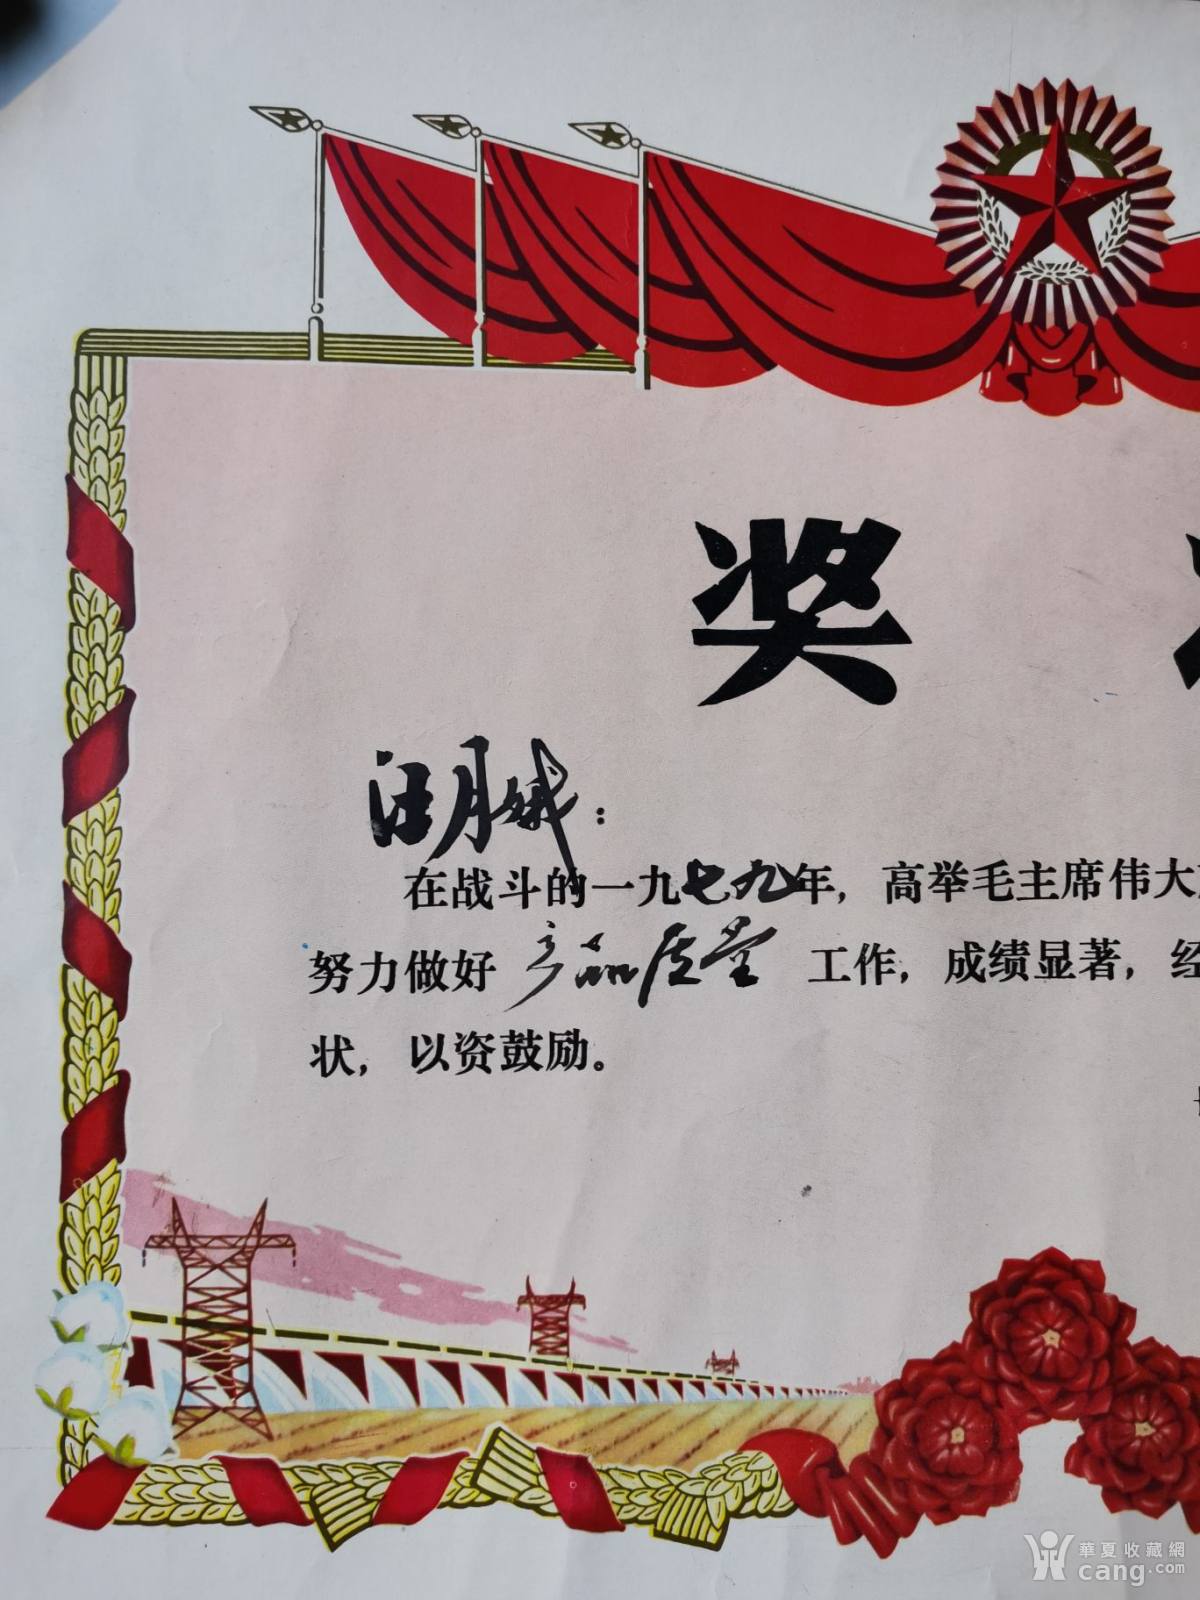 奖
汪月娥：
在战斗的一九七九年，高举毛主席伟大
努力做好 产品质量 工作，成绩显著，经
状，以资鼓励。
華夏收藏網
cang.com